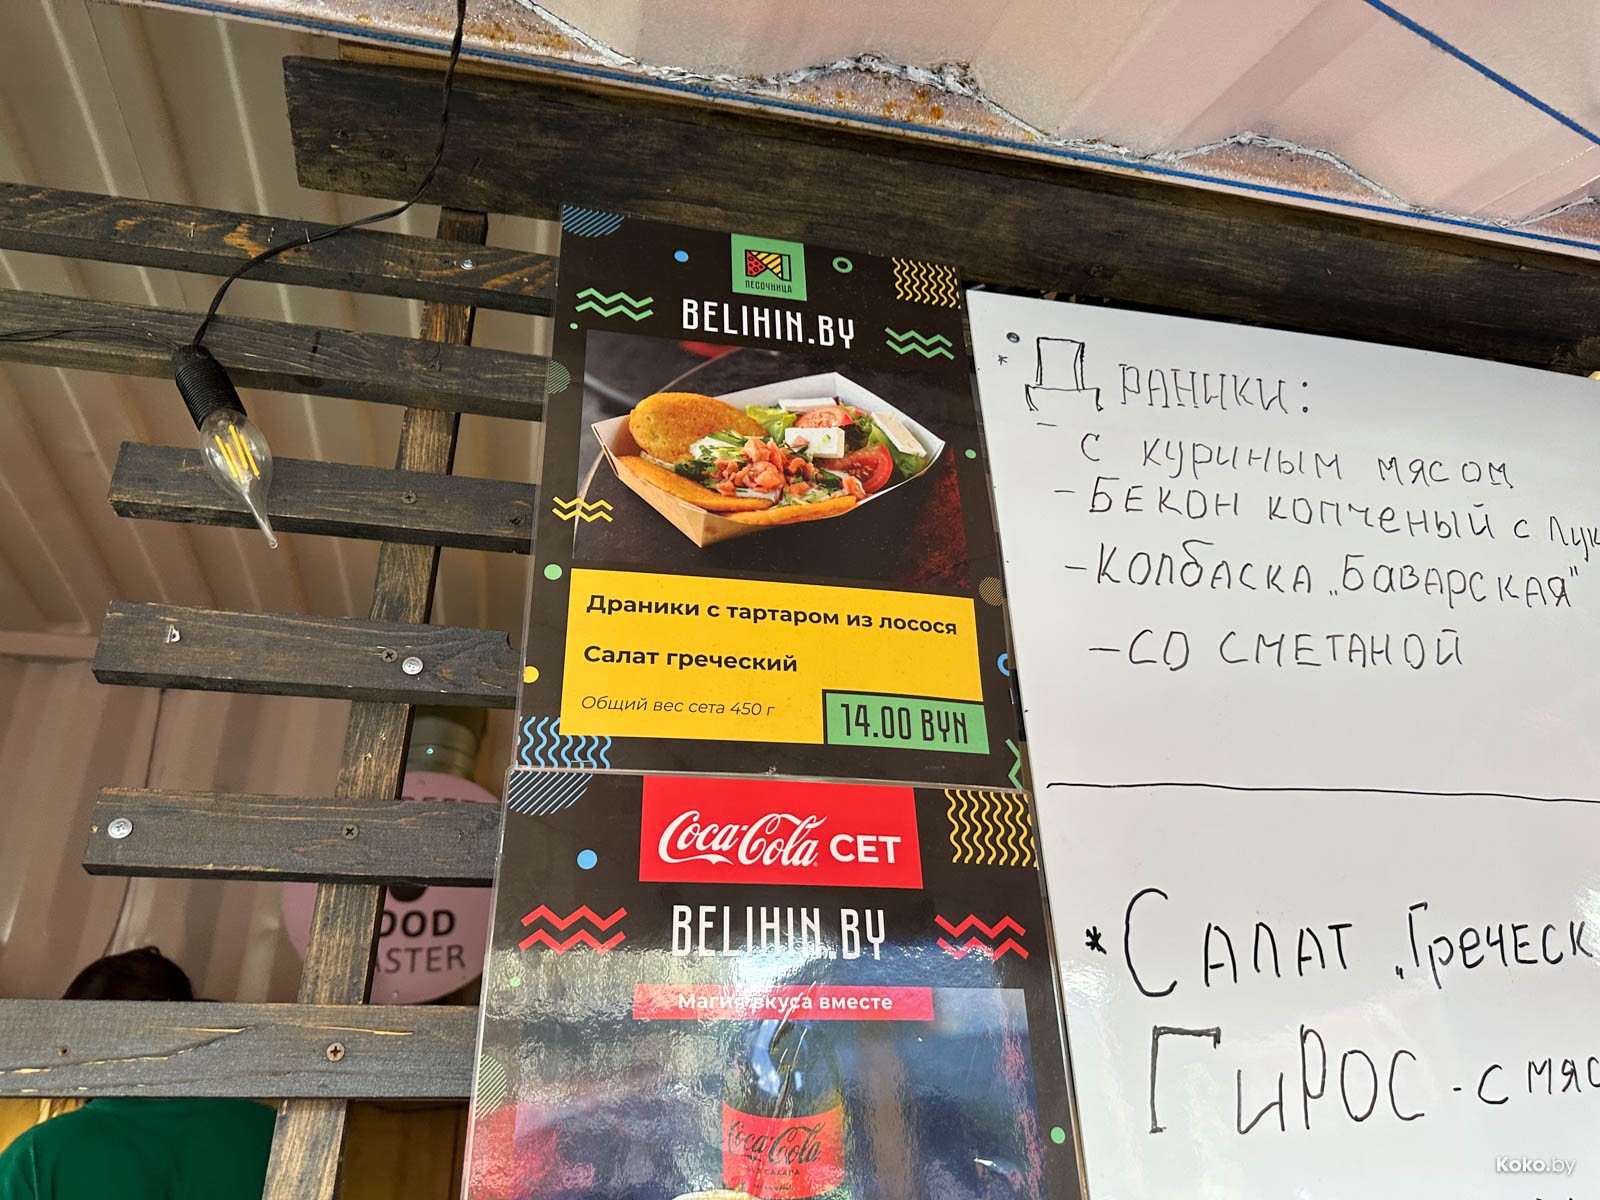 ПЕСОЧНИЦА
BELIHIN.BY
Драники с тартаром из лосося
Салат греческий
Общий вес сета 450 г
14.00 BYN
Coca-Cola СЕТ
BELIHIN.BY
Магия вкуса вместе
Coca-Cola
БЕЗ САХАРА
* ДРАНИКИ:
- С КУРИНЫМ МЯСОМ
- БЕКОН КОПЧЕНЫЙ С
- КОЛБАСКА „БАВАРСКАЯ"
- СО СМЕТАНОЙ
* САЛАТ
ГИРОС - С
Koko.by